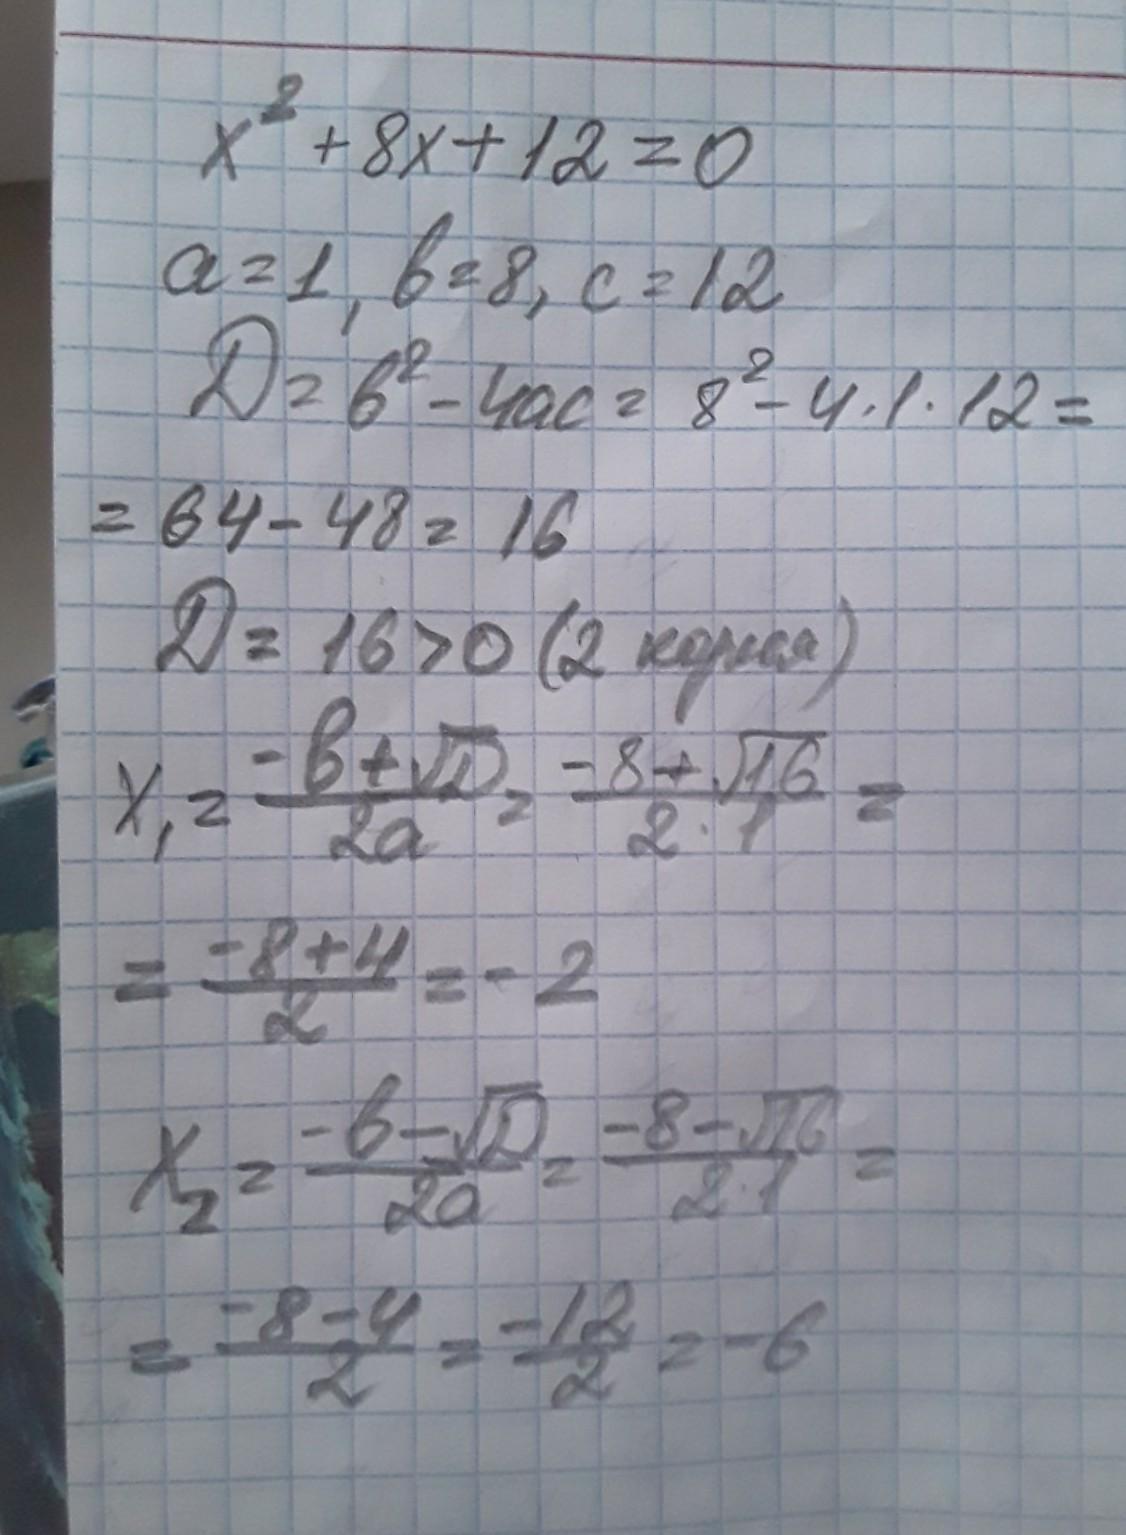 x² + 8x + 12 = 0
a = 1, b = 8, c = 12
D = b² - 4ac = 8² - 4·1·12 =
= 64 - 48 = 16
D = 16 > 0 (2 корня)
x₁ = (-b + √D)/(2a) = (-8 + √16)/(2·1) =
= (-8 + 4)/2 = -2
x₂ = (-b - √D)/(2a) = (-8 - √16)/(2·1) =
= (-8 - 4)/2 = -12/2 = -6